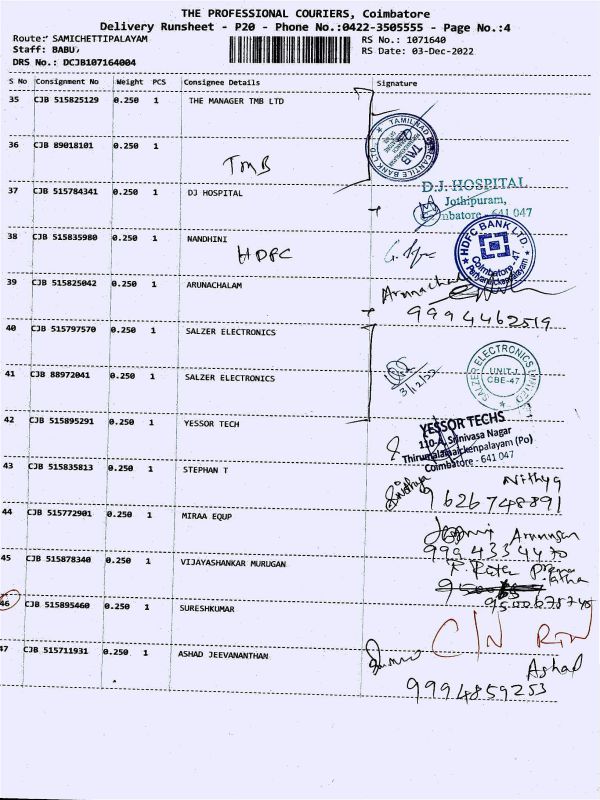 THE PROFESSIONAL COURIERS, Coimbatore
Delivery Runsheet - P20 - Phone No.:0422-3505555 - Page No.:4
Route: SAMICHETTIPALAYAM
RS No.: 1071640
Staff: BABU
RS Date: 03-Dec-2022
DRS No.: DCJB107164004
S No Consignment No Weight PCS Consignee Details Signature
35 CJB 515825129 0.250 1 THE MANAGER TMB LTD
TAMILNAD MERCANTILE BANK LTD
TMB
36 CJB 89018101 0.250 1
TMB
37 CJB 515784341 0.250 1 DJ HOSPITAL
D.J. HOSPITAL
Jothipuram,
mbatore - 641 047
38 CJB 515835980 0.250 1 NANDHINI
HDFC
HDFC BANK LTD.
Coimbatore - 47
39 CJB 515825042 0.250 1 ARUNACHALAM
9994462519
40 CJB 515797570 0.250 1 SALZER ELECTRONICS
SALZER ELECTRONICS LIMITED
UNIT-I
CBE-47
3/12/22
41 CJB 88972041 0.250 1 SALZER ELECTRONICS
42 CJB 515895291 0.250 1 YESSOR TECH
YESSOR TECHS
110-A, Srinivasa Nagar
Thirumalainaickenpalayam (Po)
Coimbatore - 641 047
43 CJB 515835813 0.250 1 STEPHAN T
Nithya
9626748891
44 CJB 515772901 0.250 1 MIRAA EQUP
9994334470
45 CJB 515878340 0.250 1 VIJAYASHANKAR MURUGAN
46 CJB 515895460 0.250 1 SURESHKUMAR
C/N RTN
47 CJB 515711931 0.250 1 ASHAD JEEVANANTHAN
Ashad
9994859253